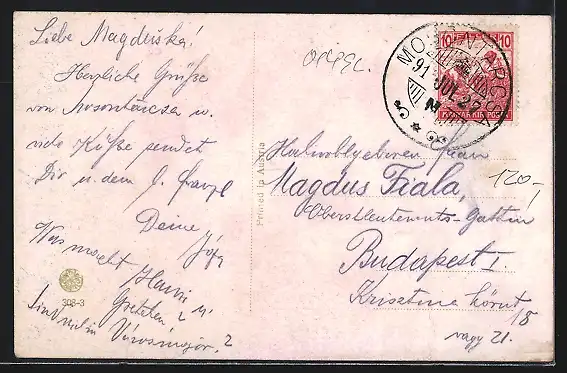 Liebe Magduška!
Herzliche Grüße
von Mosontárcsa u.
viele Küße sendet
Dir u. dem l. Franzl
Deine
Was macht Hansi
Gretchen u.
sind in
Városmajor?
308-3
Printed in Austria
MOSONTARCSA
10 10
MAGYAR KIR. POSTA
Hochwohlgeboren Frau
Magdus Fiala,
Oberstleutenants-Gattin
Budapest I
Krisztina körút
18
vagy 21.
120,-